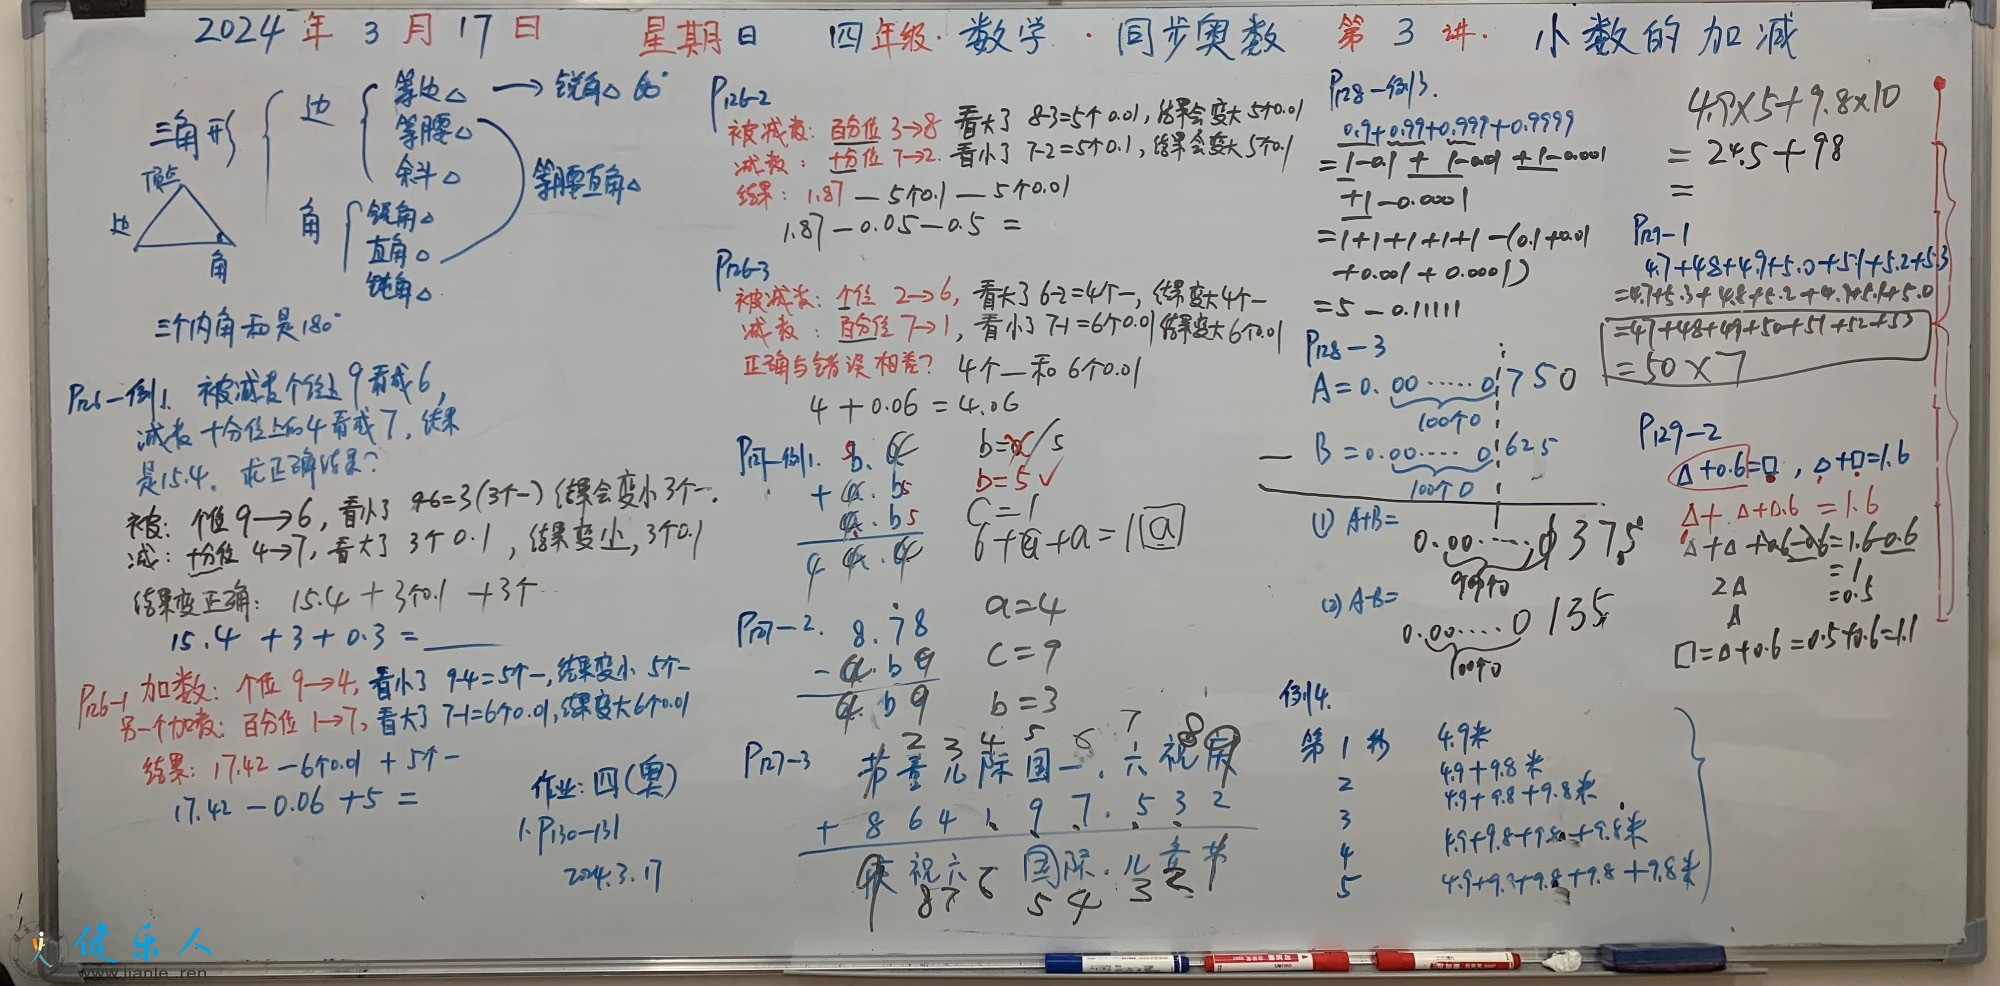 2024年3月17日 星期日 四年级·数学·同步奥数 第3讲. 小数的加减
三角形
边
等边△ → 锐角△ 60°
等腰△
余斗△
等腰直角△
角
锐角△
直角△
钝角△
顶点
边
角
三个内角和是180°
P126-例1. 被减数个位上9看成6,
减数十分位上的4看成7,结果
是15.4. 求正确结果?
被: 个位9→6, 看小了 9-6=3(3个一) 结果会变小3个一.
减: 十分位 4→7, 看大了 3个0.1, 结果变小, 3个0.1
结果变正确: 15.4+3个0.1+3个一
15.4+3+0.3=
P126-1 加数: 个位 9→4, 看小了 9-4=5个一, 结果变小 5个一
另一个加数: 百分位 1→7, 看大了 7-1=6个0.01, 结果变大6个0.01
结果: 17.42-6个0.01+5个一
17.42-0.06+5=
作业: 四(奥)
1. P130-131
2024.3.17
P126-2
被减数: 百分位 3→8 看大了 8-3=5个0.01, 结果会变大5个0.01
减数: 十分位 7→2. 看小了 7-2=5个0.1, 结果会变大5个0.1
结果: 1.87-5个0.1-5个0.01
1.87-0.05-0.5=
P126-3
被减数: 个位 2→6, 看大了6-2=4个一, 结果变大4个一
减数: 百分位 7→1, 看小了 7-1=6个0.01 结果变大6个0.01
正确与错误相差? 4个一和6个0.01
4+0.06=4.06
P127-例1.
b=5✓
C=1
6+a+a=1a
P127-2.
8.78
-a.b9
a.b9
a=4
c=9
b=3
P127-3
2 3 4 5 6 7 8 9
节童儿际国一.六祝庆
+8641 97.532
庆祝六一国际.儿童节
9 8 7 6 5 4 3 2
P128-例3.
0.9+0.99+0.999+0.9999
=1-0.1+1-0.01+1-0.001
+1-0.0001
=1+1+1+1+1-(0.1+0.01
+0.001+0.0001)
=5-0.11111
P128-3
A=0.00……0750
100个0
-B=0.00……0625
100个0
(1) A+B=
0.00……01375
99个0
(2) A-B=
0.00……0135
100个0
例4.
第1秒 4.9米
2 4.9+9.8米
3 4.9+9.8+9.8米
4 4.9+9.8+9.8+9.8米
5 4.9+9.8+9.8+9.8+9.8米
4.9×5+9.8×10
=24.5+98
=
P129-1
4.7+4.8+4.9+5.0+5.1+5.2+5.3
=4.7+5.3+4.8+5.2+4.9+5.1+5.0
=47+48+49+50+51+52+53
=50×7
P129-2
△+0.6=□, △+□=1.6
△+△+0.6=1.6
△+△+0.6-0.6=1.6-0.6
2△=1
△=0.5
□=△+0.6=0.5+0.6=1.1
健乐人
www.jianle.ren